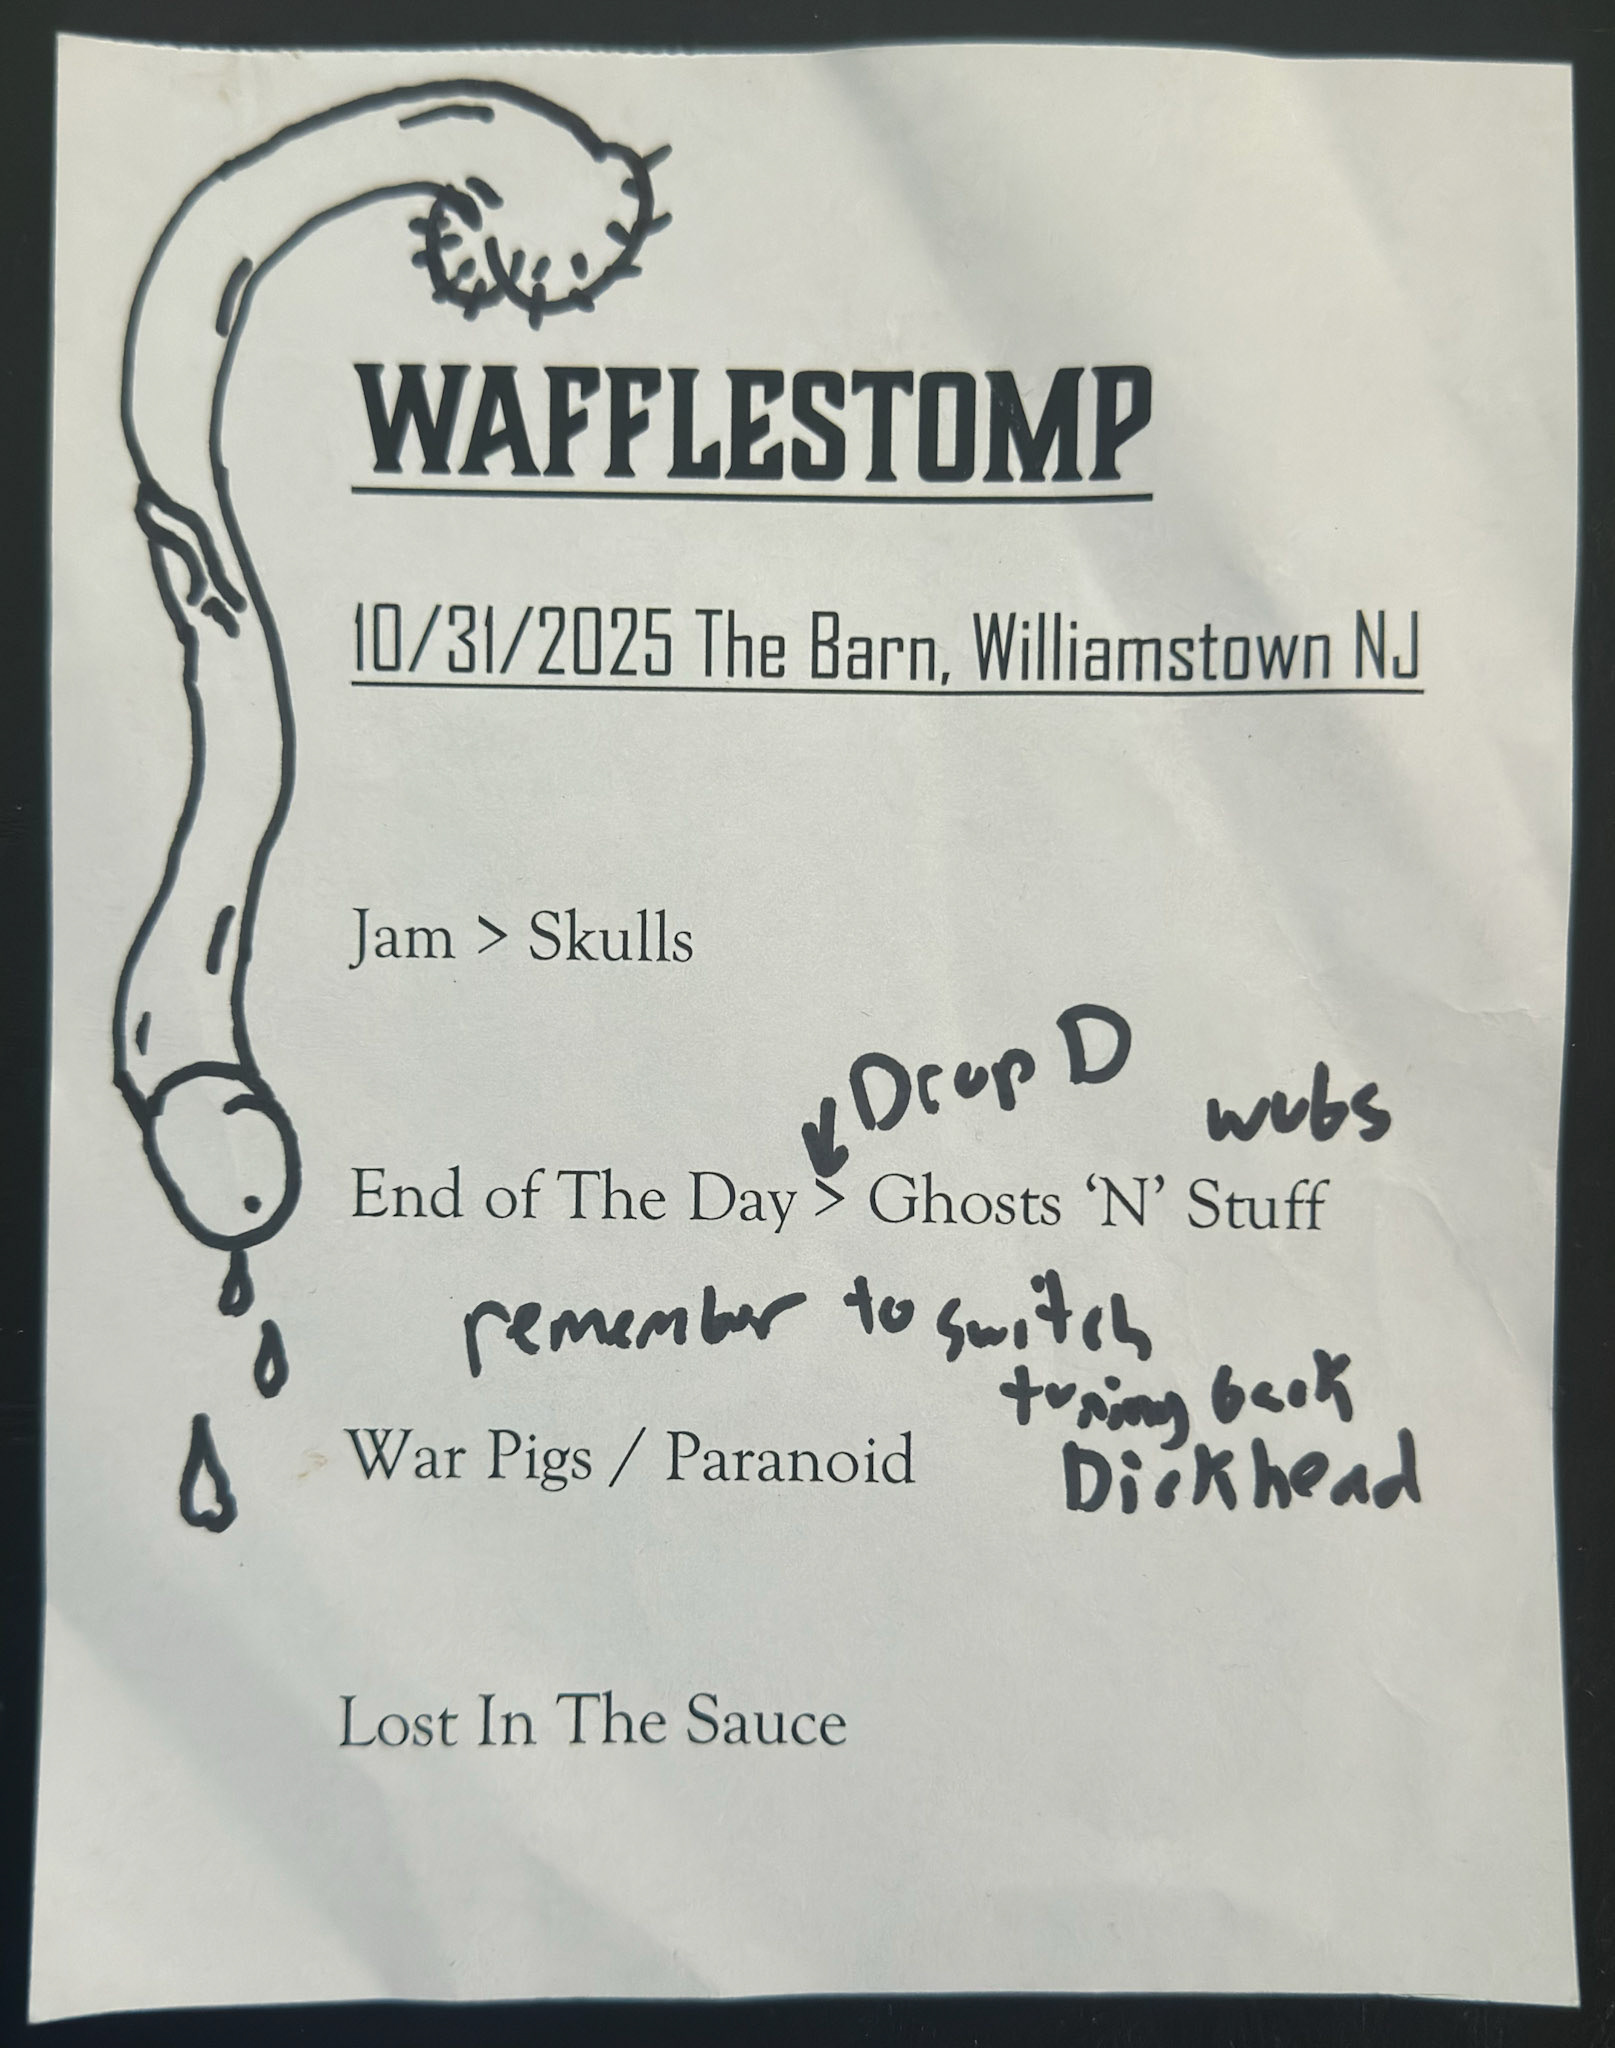 WAFFLESTOMP
10/31/2025 The Barn, Williamstown NJ
Jam > Skulls
Drop D
wubs
End of The Day > Ghosts ‘N’ Stuff
remember to switch
tuning back
Dickhead
War Pigs / Paranoid
Lost In The Sauce